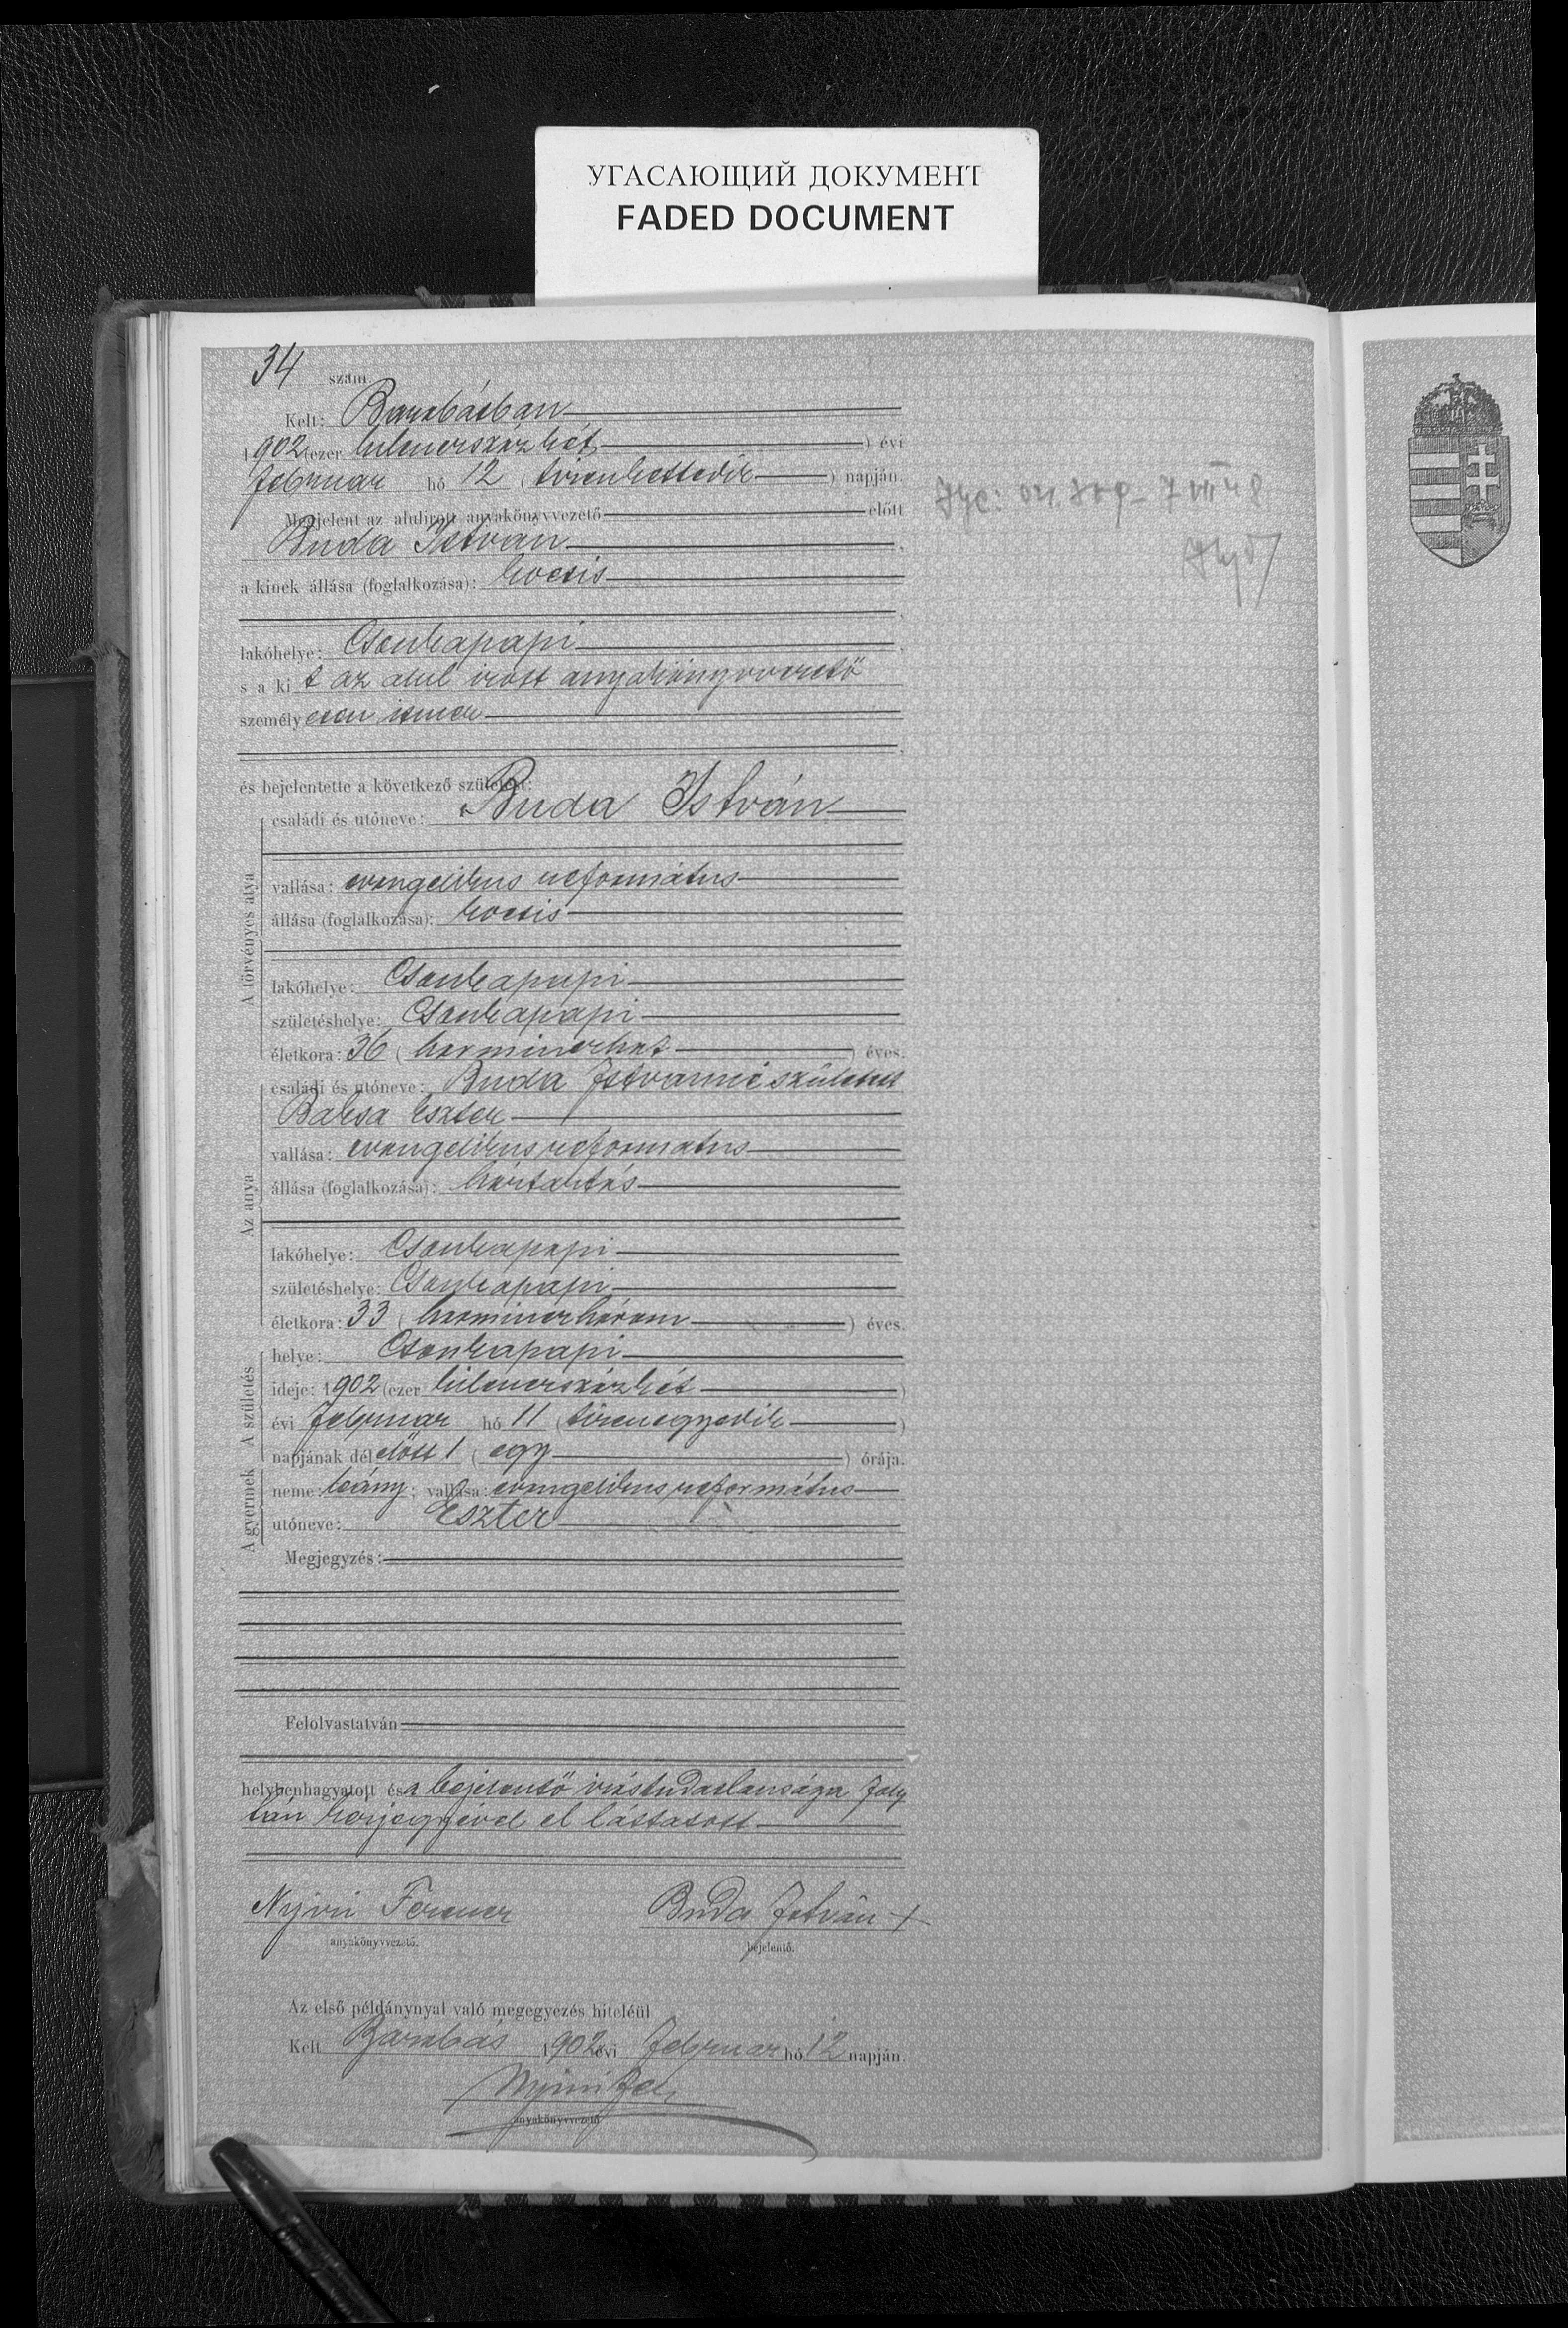 УГАСАЮЩИЙ ДОКУМЕНТ
FADED DOCUMENT
34 szám.
Kelt: Barabásban
1902 (ezer kilencszázkét) évi
február hó 12 (tizenkettedik) napján.
Megjelent az alulirott anyakönyvvezető előtt
Buda István
a kinek állása (foglalkozása): kocsis
lakóhelye: Csonkapapi
s a kit az alul irott anyakönyvvezető
személyesen ismer
és bejelentette a következő születést:
A törvényes atya
családi és utóneve: Buda István
vallása: evangelikus református
állása (foglalkozása): kocsis
lakóhelye: Csonkapapi
születéshelye: Csonkapapi
életkora: 36 (harminczhat) éves.
Az anya
családi és utóneve: Buda Istvanné született
Baksa Eszter
vallása: evangelikus reformatus
állása (foglalkozása): háztartás
lakóhelye: Csonkapapi
születéshelye: Csonkapapi
életkora: 33 (harminczhárom) éves.
A születés
helye: Csonkapapi
ideje: 1902 (ezer kilenczszázkét)
évi február hó 11 (tizenegyedik)
napjának délelőtt 1 (egy) órája.
A gyermek
neme: leány; vallása: evangelikus református
utóneve: Eszter
Megjegyzés:
Felolvastatván
helybenhagyatott és a bejelentő irástudatlansága foly
tán kézjegyével el láttatott
Nyiri Ferencz Buda István +
anyakönyvvezető. bejelentő.
Az első példánynyal való megegyezés hiteléül
Kelt Barabás 1902 évi február hó 12 napján.
Nyiri
anyakönyvvezető